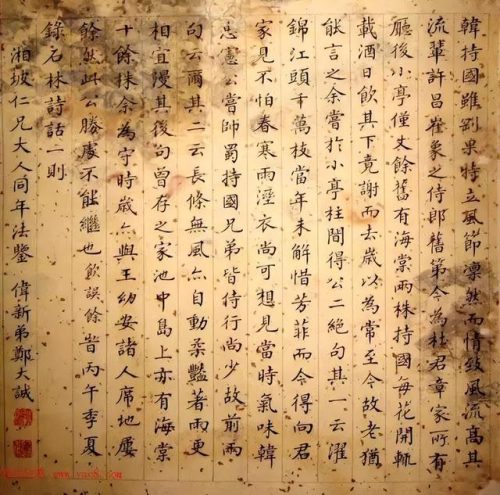 韓持國雖剛果特立風節凛然而情致風流高其
流輩許昌崔象之侍郎舊第今為杜君章家所有
廳後小亭僅丈餘舊有海棠兩株持國每花開輒
載酒日飲其下竟謝而去歲以為常至今故老猶
能言之余嘗於小亭柱間得公二絕句其一云濯
錦江頭千萬枝當年未解惜芳菲而今得向君
家見不怕春寒雨溼衣尚可想見當時氣味韓
忠憲公嘗帥蜀持國兄弟皆侍行尚少故前兩
句云爾其二云長條無風亦自動柔豔著雨更
相宜漫其後句曾存之家池中島上亦有海棠
十餘株余為守時歲亦與王幼安諸人席地屢
餘然此公勝處不能繼也 飲誤餘 旹丙午季夏
錄石林詩話二則
湘坡仁兄大人同年法鑒 偉新弟鄭大誠
www.yac8.com